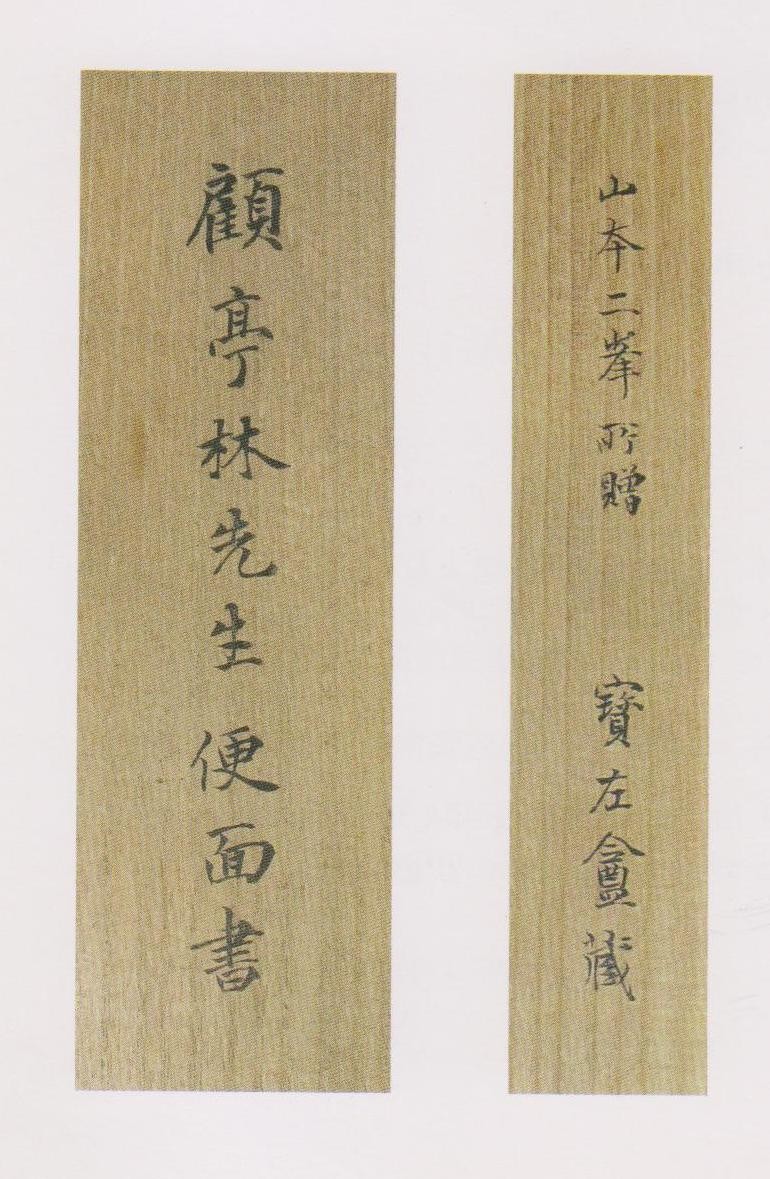 山本二峯所贈　寶左盦藏
顧亭林先生便面書